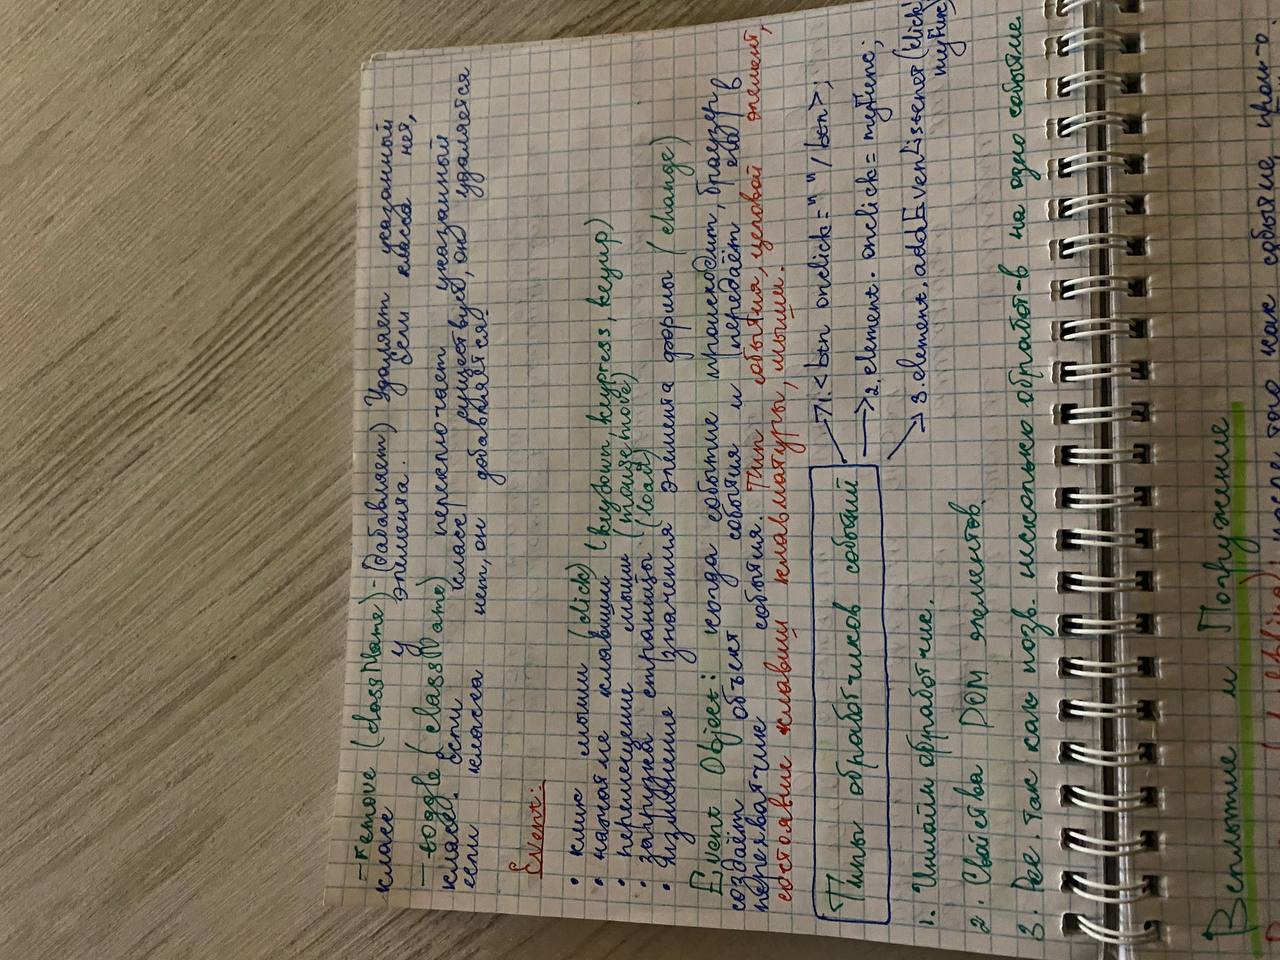 – remove (className) - (дабавляет) Удаляет указанный
класс у элемента. Если класса нет,
– toggle (className) переключает указанный
класс. Если класс существует, он удаляется
если класса нет, он добавляется.
Event:
• клик мыши (click)
• нажатие клавиши (keydown, keypress, keyup)
• перемещение мыши (mousemove)
• загрузка страницы (load)
• изменение значения элемента формы (change)
Event Object: когда событие происходит, браузер
создаёт объект события и передаёт его в
перехватчик события. Тип события, целовой элемент,
состояние клавиш клавиатуры, мыши.
Типы обработчиков событий
1. <btn onclick=" "/btn>;
2. element.onclick = myFunc;
3. element.addEvenListener(click'
myFunc)
1. Инлайн обработчик.
2. Свойства DOM элементов.
3. Рек. так как позв. несколько обработ-в на одно событие.
Всплытие и Погружение
после того как событие прои-о.